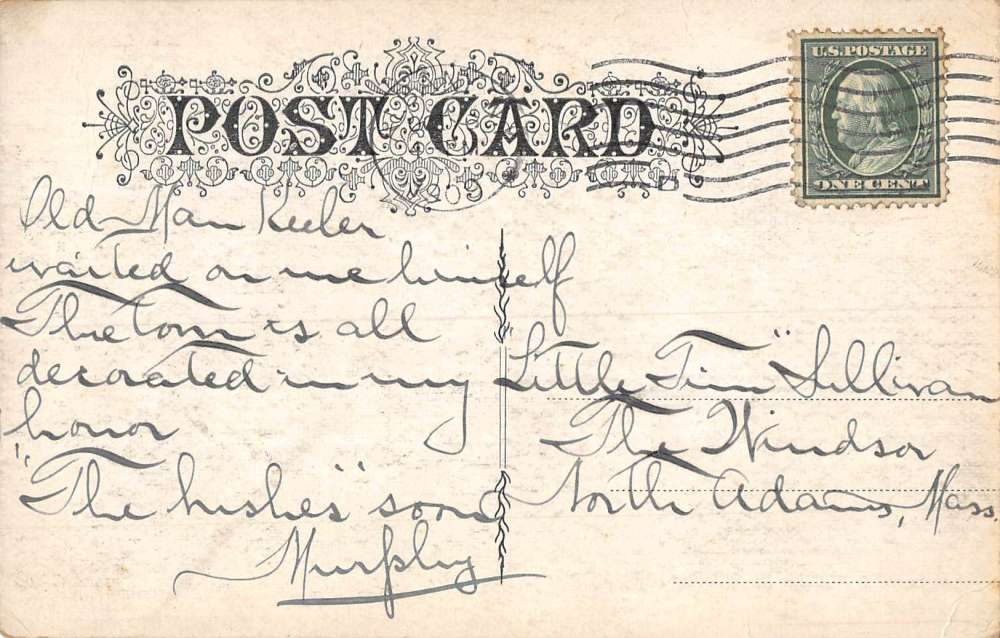 POST CARD
U.S. POSTAGE
ONE CENT
09
Old Man Keeler
waited on me himself
The Town is all
decorated in my
honor
"The hushes" song
Murphy
"Little Tim" Sullivan
The Windsor
North Adams, Mass.